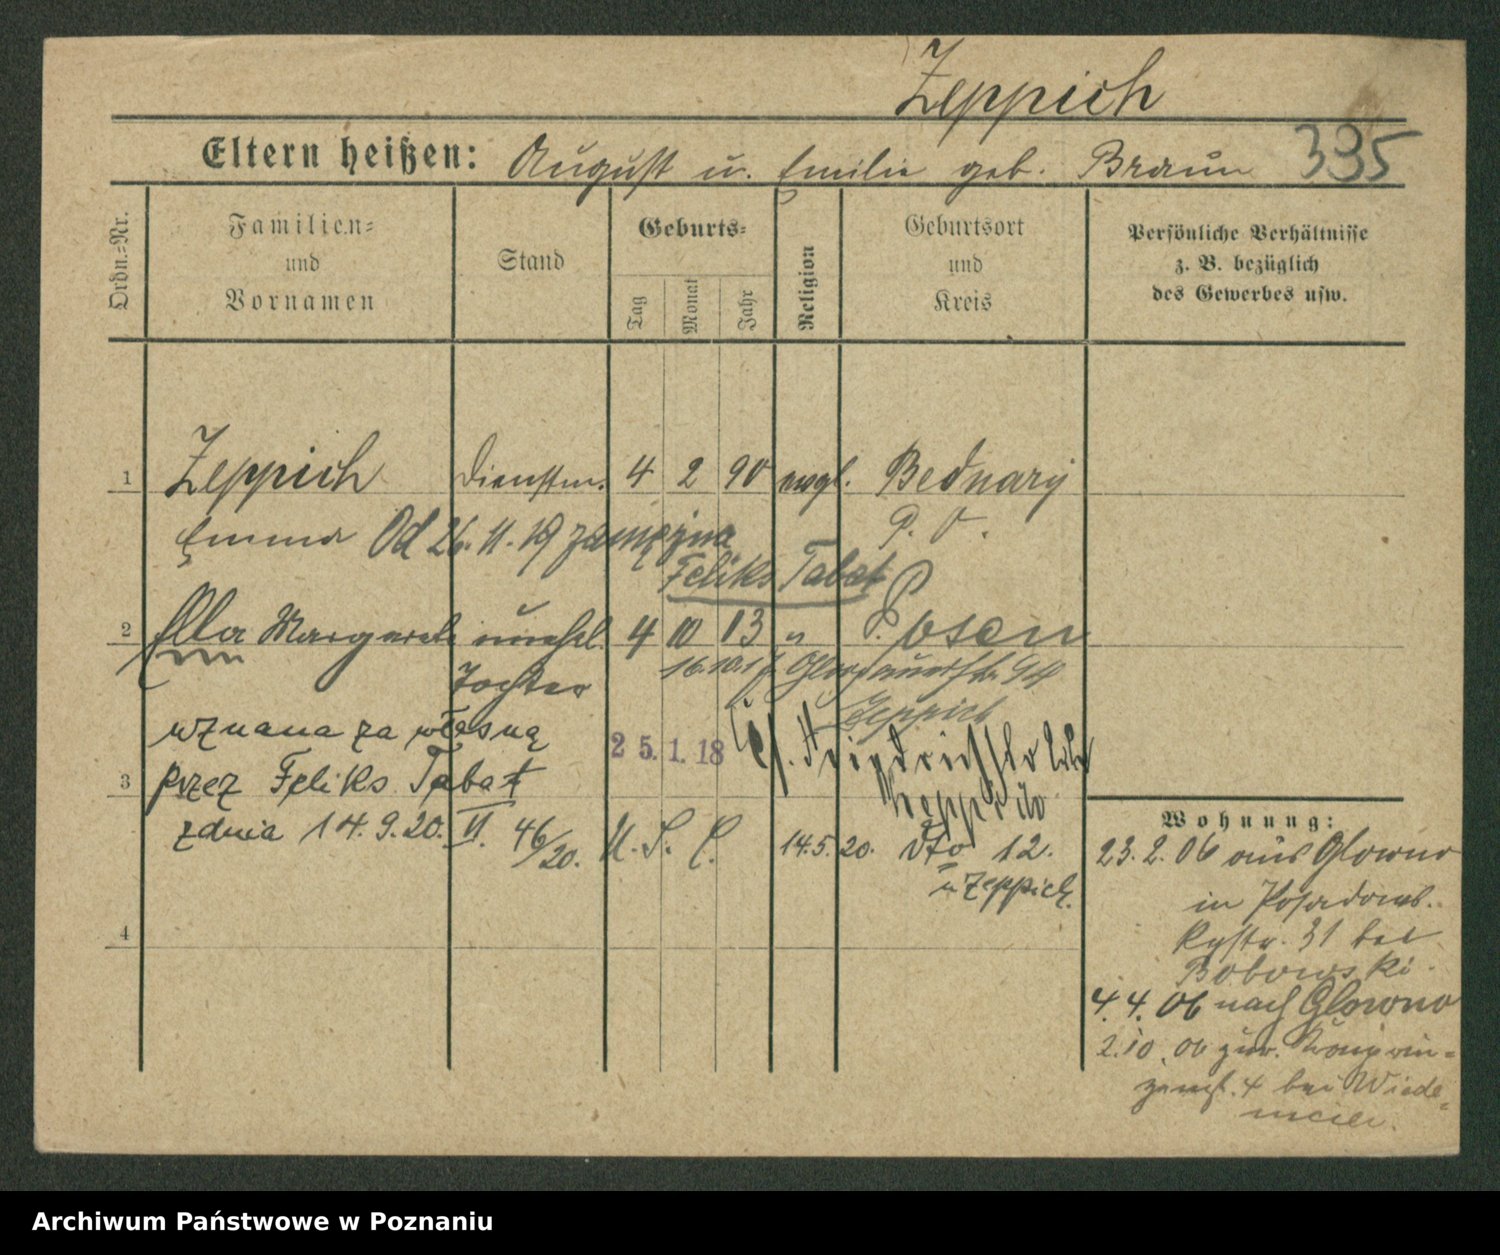 Zeppich
Eltern heißen: August u. Emilie geb. Braun 395
Ordn.-Nr.
Familien-
und
Vornamen
Stand
Geburts-
Tag
Monat
Jahr
Religion
Geburtsort
und
Kreis
Persönliche Verhältnisse
z. B. bezüglich
des Gewerbes usw.
1 Zeppich Dienstm. 4 2 90 evgl. Bednary
Emma Od 26.11.19 zamężna P. O.
Feliks Tabat
2 Ella Margarete unehel. 4 10 13 " Posen
Tochter
Zeppich
uznana za własną 25.1.18
3 przez Feliks Tabat Zeppich
z dnia 14.9.20. VI. 46/20. U.S.C. 14.5.20. dto 12.
u Zeppich.
4
Wohnung:
23.2.06 aus Glowno
in
31 bei
Bobowski.
4.4.06 nach Glowno
2.10.06 zur.
4 bei Wiede-
meier.
Archiwum Państwowe w Poznaniu